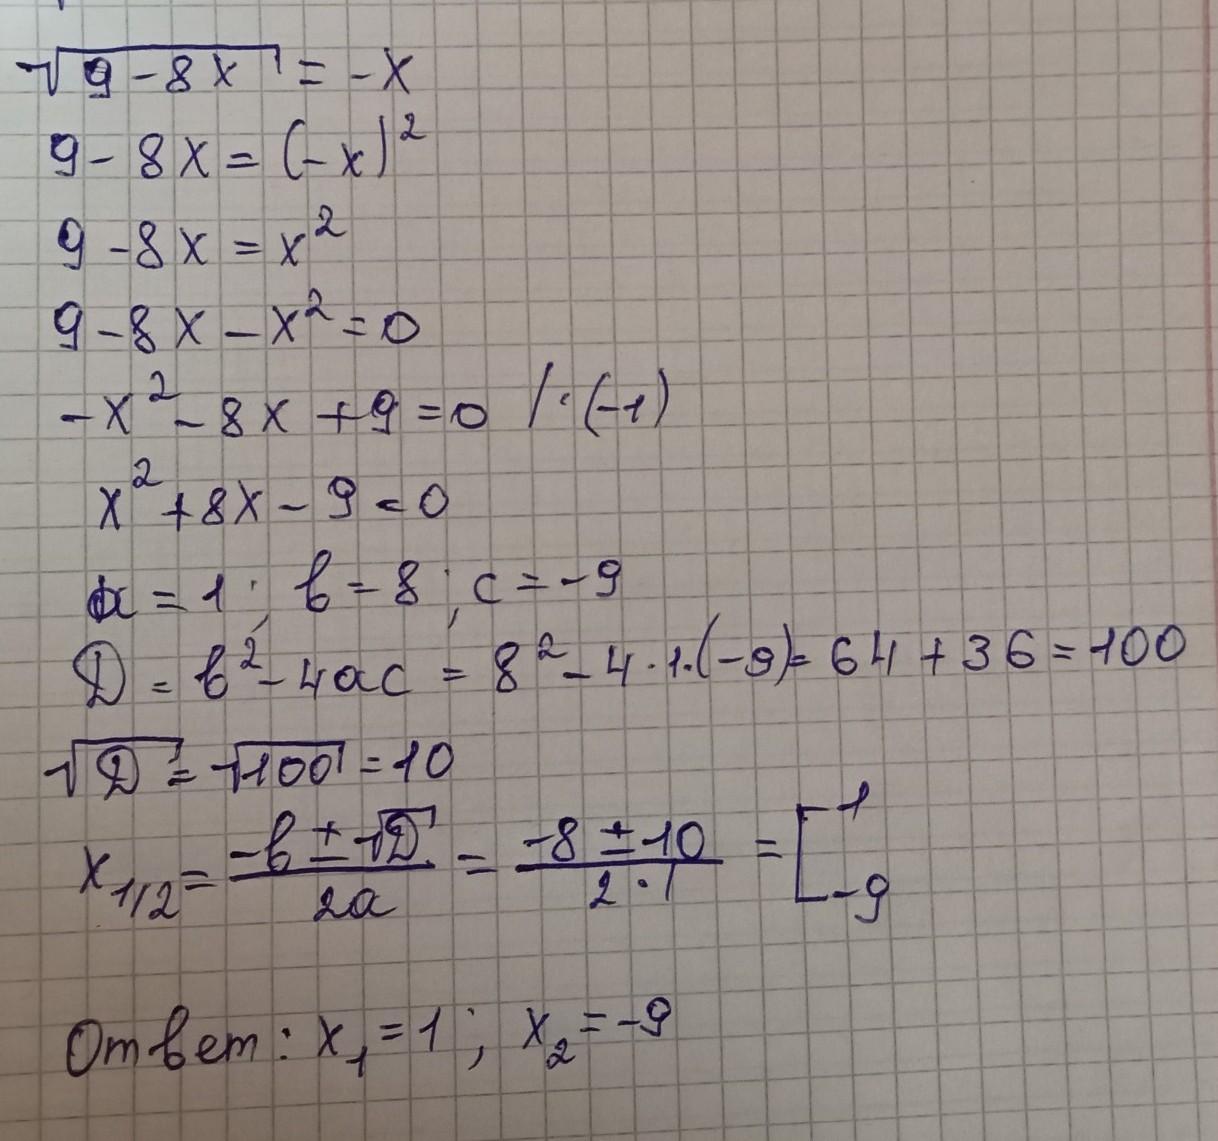 √(9 - 8x) = -x
9 - 8x = (-x)²
9 - 8x = x²
9 - 8x - x² = 0
-x² - 8x + 9 = 0 /·(-1)
x² + 8x - 9 = 0
a = 1; b = 8; c = -9
D = b² - 4ac = 8² - 4·1·(-9) = 64 + 36 = 100
√D = √100 = 10
x₁/₂ = (-b ± √D)/(2a) = (-8 ± 10)/(2·1) = [1 -9
Ответ: x₁ = 1; x₂ = -9